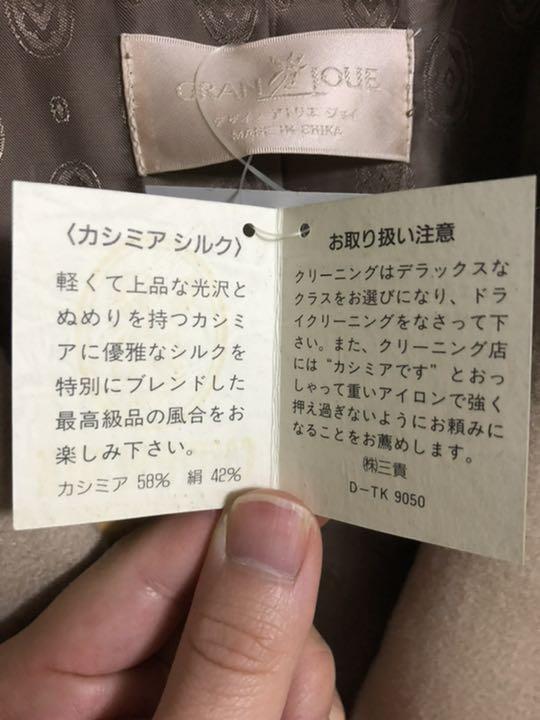 GRAN JOUE
デザイン アトリエ ジョイ
MADE IN CHINA
〈カシミア シルク〉
軽くて上品な光沢と
ぬめりを持つカシミ
アに優雅なシルクを
特別にブレンドした
最高級品の風合をお
楽しみ下さい。
カシミア 58% 絹 42%
お取り扱い注意
クリーニングはデラックスな
クラスをお選びになり、ドラ
イクリーニングをなさって下
さい。また、クリーニング店
には“カシミアです”とおっ
しゃって重いアイロンで強く
押え過ぎないようにお頼みに
なることをお薦めします。
㈱三貴
D-TK 9050